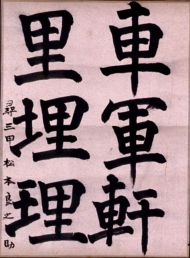 車軍軒
里埋理
尋三甲 松本良之助